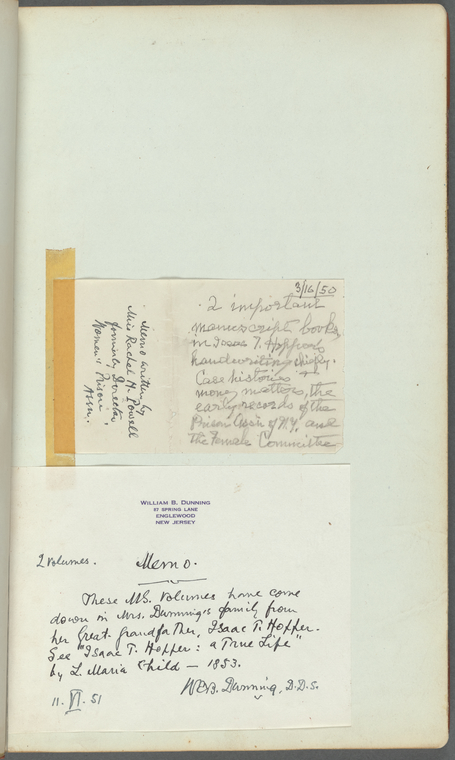 3/16/50
2 important
manuscript books
in Isaac T. Hopper's
handwriting chiefly.
Case histories +
money matters, the
early records of the
Prison Ass'n of N.Y. and
the Female Committee
Memo written by
Miss Rachel H. Powell
formerly Director,
Women's Prison
Assn.
WILLIAM B. DUNNING
57 SPRING LANE
ENGLEWOOD
NEW JERSEY
2 volumes. Memo.
These MS. volumes have come
down in Mrs. Dunning's family from
her Great grandfather, Isaac T. Hopper.
See "Isaac T. Hopper: a True Life"
by L. Maria Child — 1853.
WB. Dunning, D.D.S.
11. VI. 51